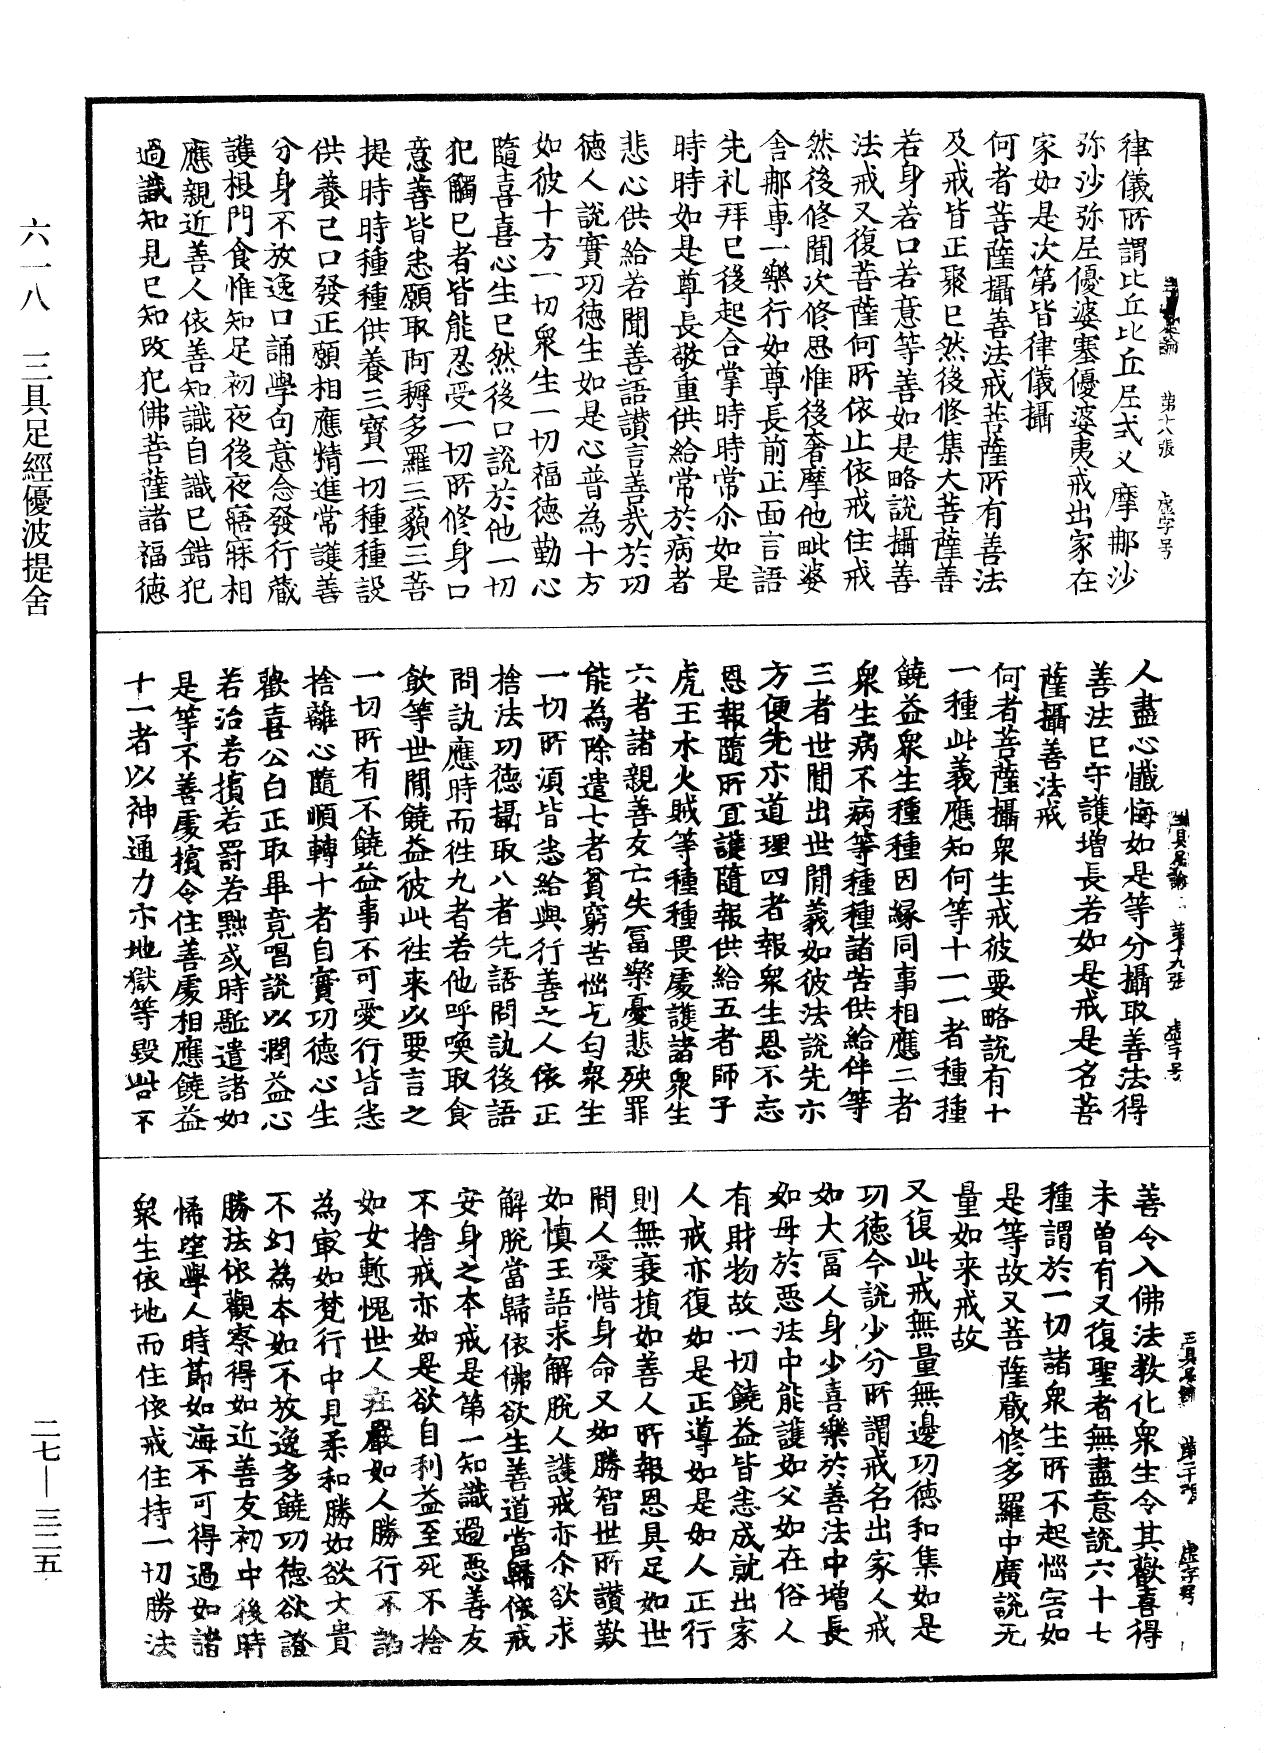 律儀所謂比丘比丘尼式叉摩那沙
弥沙弥尼優婆塞優婆夷戒出家在
家如是次第皆律儀攝
何者菩薩攝善法戒菩薩所有善法
及戒皆正聚已然後修集大菩薩善
若身若口若意等善如是略說攝善
法戒又復菩薩何所依止依戒住戒
然後修聞次修思惟後奢摩他毗婆
舍那專一樂行如尊長前正面言語
先礼拜已後起合掌時時常尒如是
時時如是尊長敬重供給常於病者
悲心供給若聞善語讃言善哉於功
德人說實功德生如是心普為十方
如彼十方一切衆生一切福德勤心
隨喜喜心生已然後口說於他一切
犯觸已者皆能忍受一切所修身口
意善皆悉願取阿耨多羅三藐三菩
提時時種種供養三寶一切種種設
供養已口發正願相應精進常護善
分身不放逸口誦學句意念發行藏
護根門食惟知足初夜後夜寤寐相
應親近善人依善知識自識已錯犯
過識知見已知改犯佛菩薩諸福德
人盡心懺悔如是等分攝取善法得
善法已守護增長若如是戒是名菩
薩攝善法戒
何者菩薩攝衆生戒彼要略說有十
一種此義應知何等十一一者種種
饒益衆生種種因緣同事相應二者
衆生病不病等種種諸苦供給伴等
三者世間出世間義如彼法說先示
方便先示道理四者報衆生恩不忘
恩報隨所宜護隨報供給五者師子
虎王水火賊等種種畏處護諸衆生
六者諸親善友亡失冨樂憂悲殃罪
能為除遣七者貧窮苦惱乞匃衆生
一切所湏皆悉給與行善之人依正
捨法功德攝取八者先語問訊後語
問訊應時而徃九者若他呼喚取食
飲等世間饒益彼此徃来以要言之
一切所有不饒益事不可愛行皆悉
捨離心隨順轉十者自實功德心生
歡喜公白正取畢竟唱說以潤益心
若治若擯若罸若黙或時駈遣諸如
是等不善處擯令住善處相應饒益
十一者以神通力示地獄等毀呰不
善令入佛法教化衆生令其歡喜得
未曽有又復聖者無盡意說六十七
種謂於一切諸衆生所不起惱害如
是等故又菩薩藏修多羅中廣說无
量如来戒故
又復此戒無量無邊功德和集如是
功德今說少分所謂戒名出家人戒
如大冨人身少喜樂於善法中增長
如母於惡法中能護如父如在俗人
有財物故一切饒益皆悉成就出家
人戒亦復如是正導如是如人正行
則無衰損如善人所報恩具足如世
間人愛惜身命又如勝智世所讃歎
如慎王語求解脫人護戒亦尒欲求
解脫當歸依佛欲生善道當歸依戒
安身之本戒是第一知識過惡善友
不捨戒亦如是欲自利益至死不捨
如女慙愧世人莊嚴如人勝行不諂
為冣如梵行中見柔和勝如欲大貴
不幻為本如不放逸多饒功德欲證
勝法依觀察得如近善友初中後時
悕望學人時節如海不可得過如諸
衆生依地而住依戒住持一切勝法
第十八張　虛字号
三具足論　第十九張　虛字号
三具足論　第二十張　虛字号
六一八　三具足經優波提舍
二七—三二五